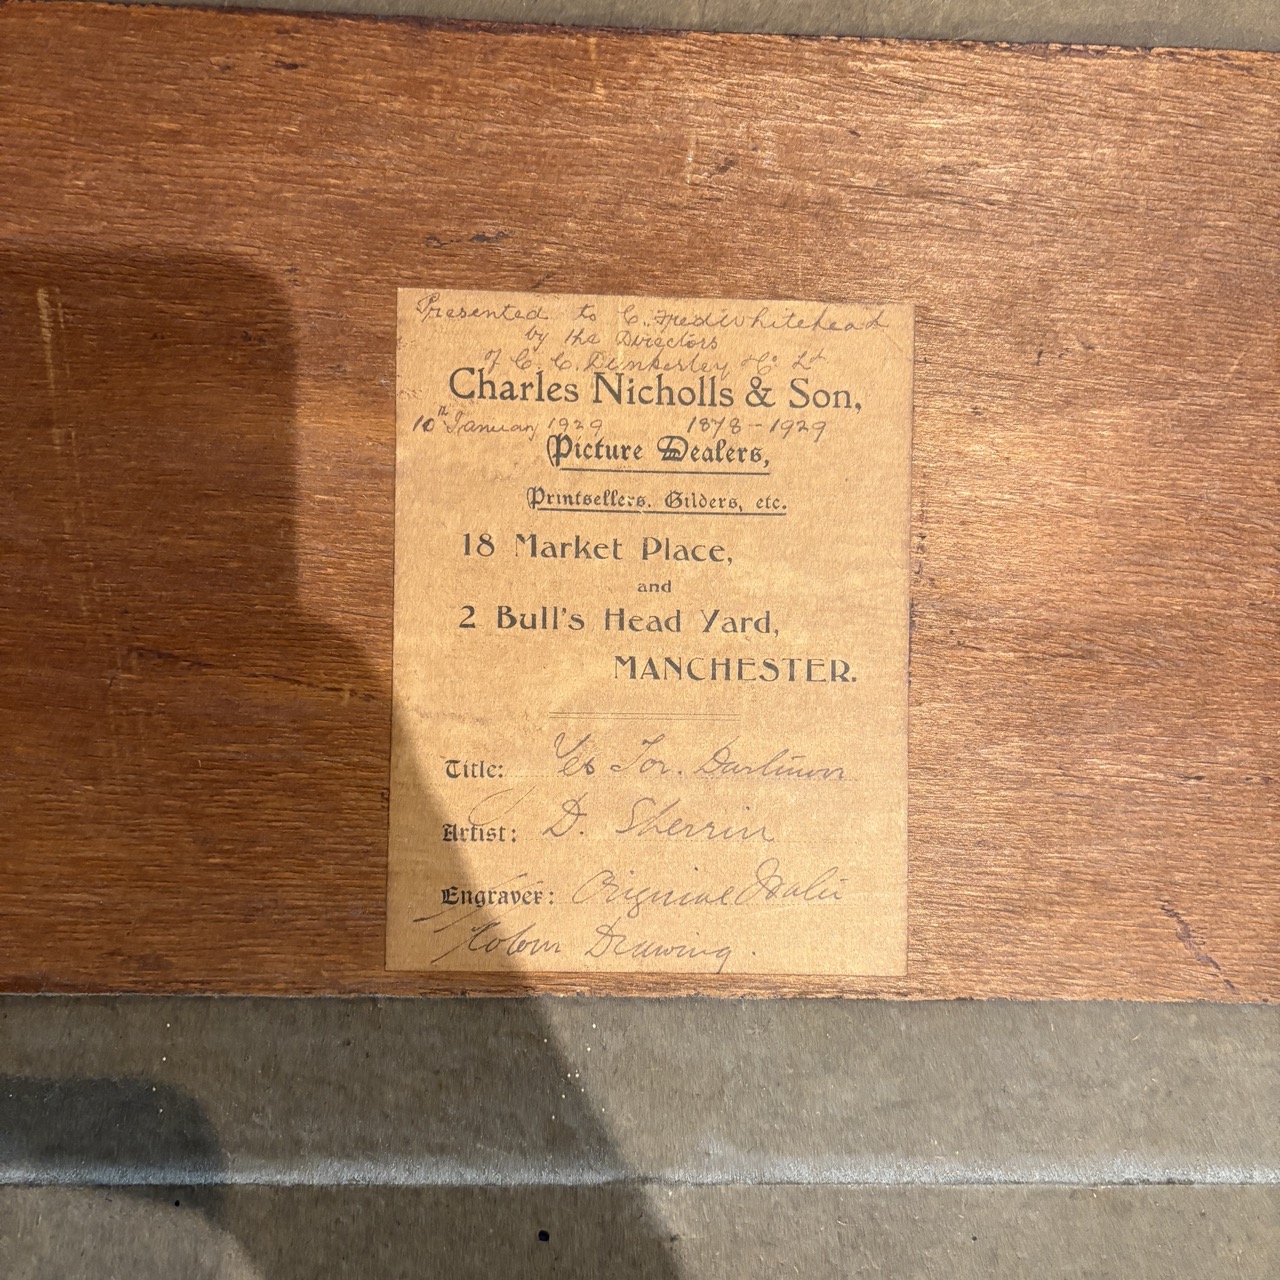 Presented to C. Fred Whitehead
by the Directors
of C. C. Dunkerley & Co Ld
Charles Nicholls & Son,
10th January 1929 1878-1929
Picture Dealers,
Printsellers, Gilders, etc.
18 Market Place,
and
2 Bull's Head Yard,
MANCHESTER.
Title: Yes Tor. Dartmoor
Artist: D. Sherrin
Engraver: Original Water
Colour Drawing.